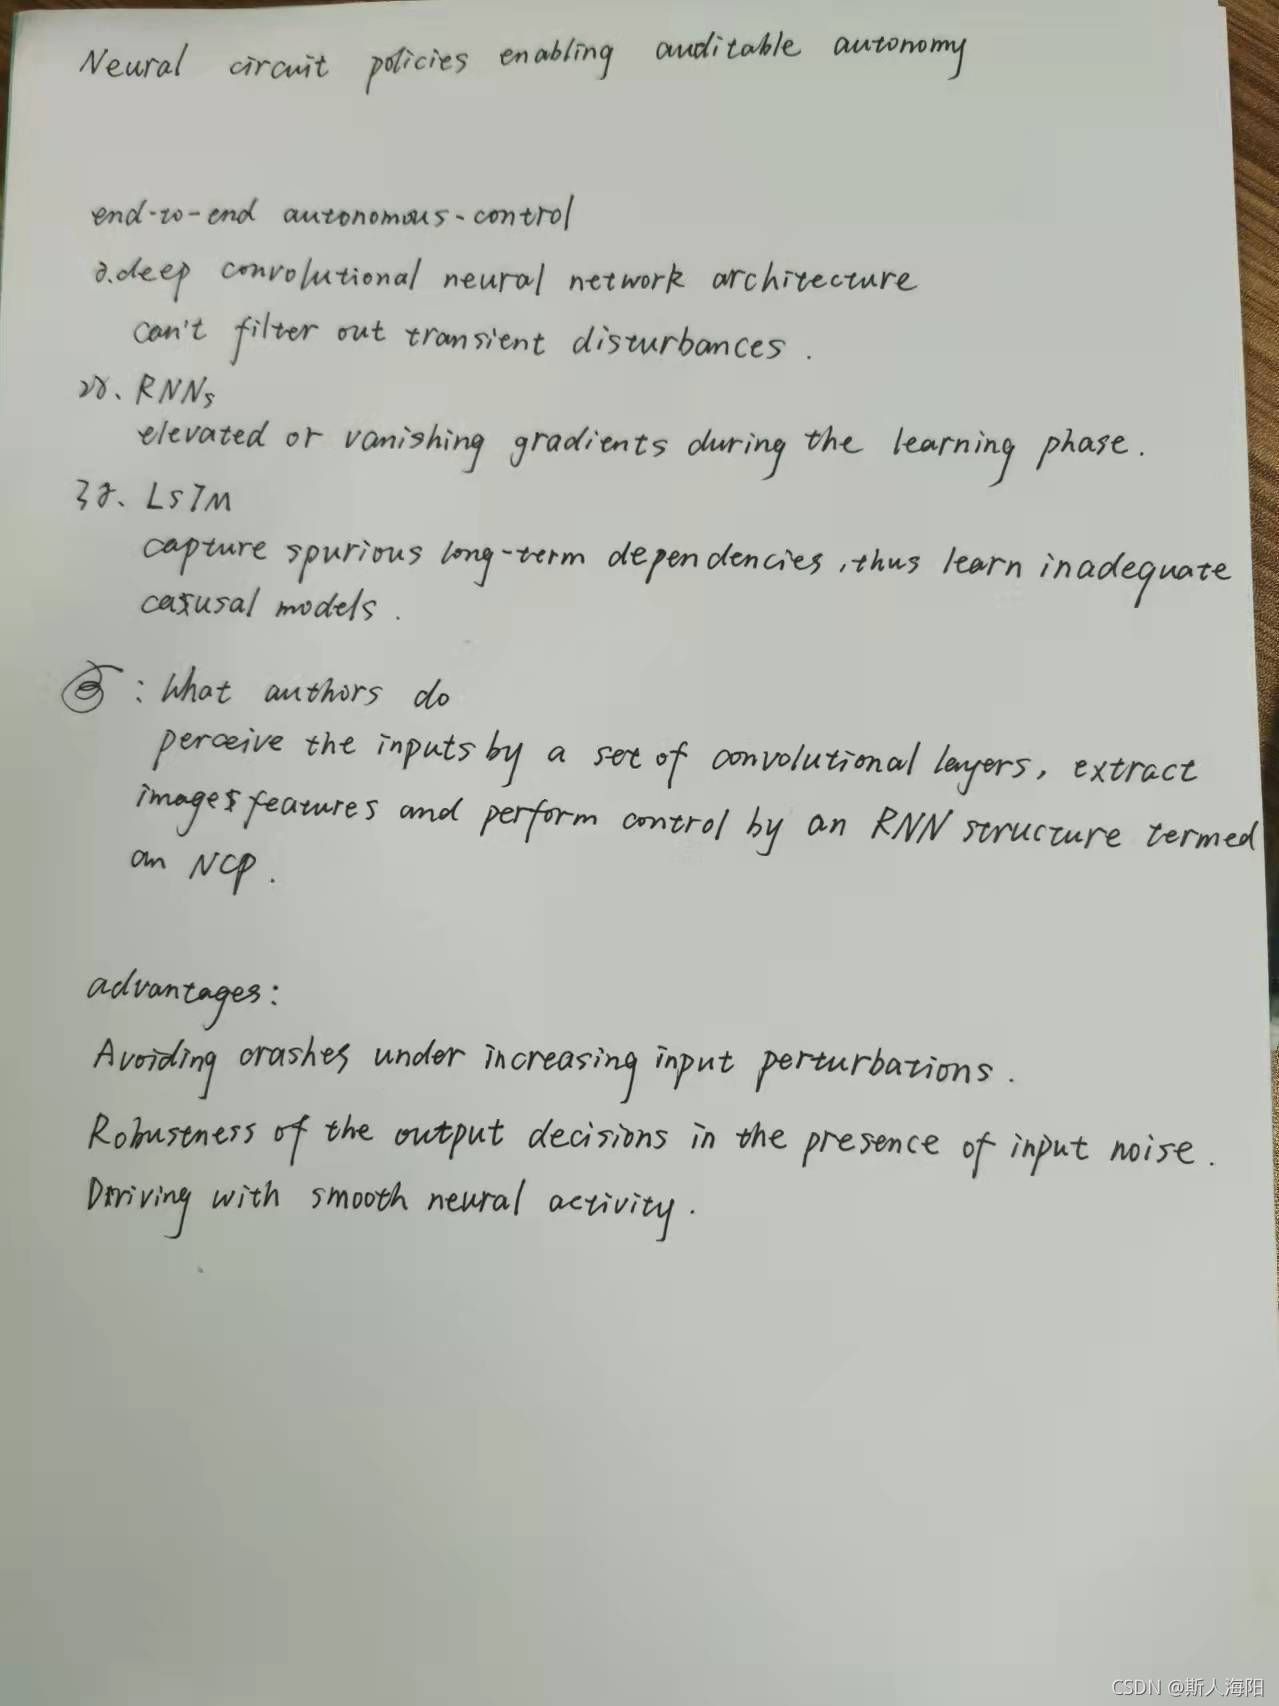 Neural circuit policies enabling auditable autonomy
end-to-end autonomous-control
deep convolutional neural network architecture
can't filter out transient disturbances.
RNNs
elevated or vanishing gradients during the learning phase.
LSTM
capture spurious long-term dependencies, thus learn inadequate
causal models.
: What authors do
perceive the inputs by a set of convolutional layers, extract
images features and perform control by an RNN structure termed
an NCP.
advantages:
Avoiding crashes under increasing input perturbations.
Robustness of the output decisions in the presence of input noise.
Driving with smooth neural activity.
CSDN @斯人海阳